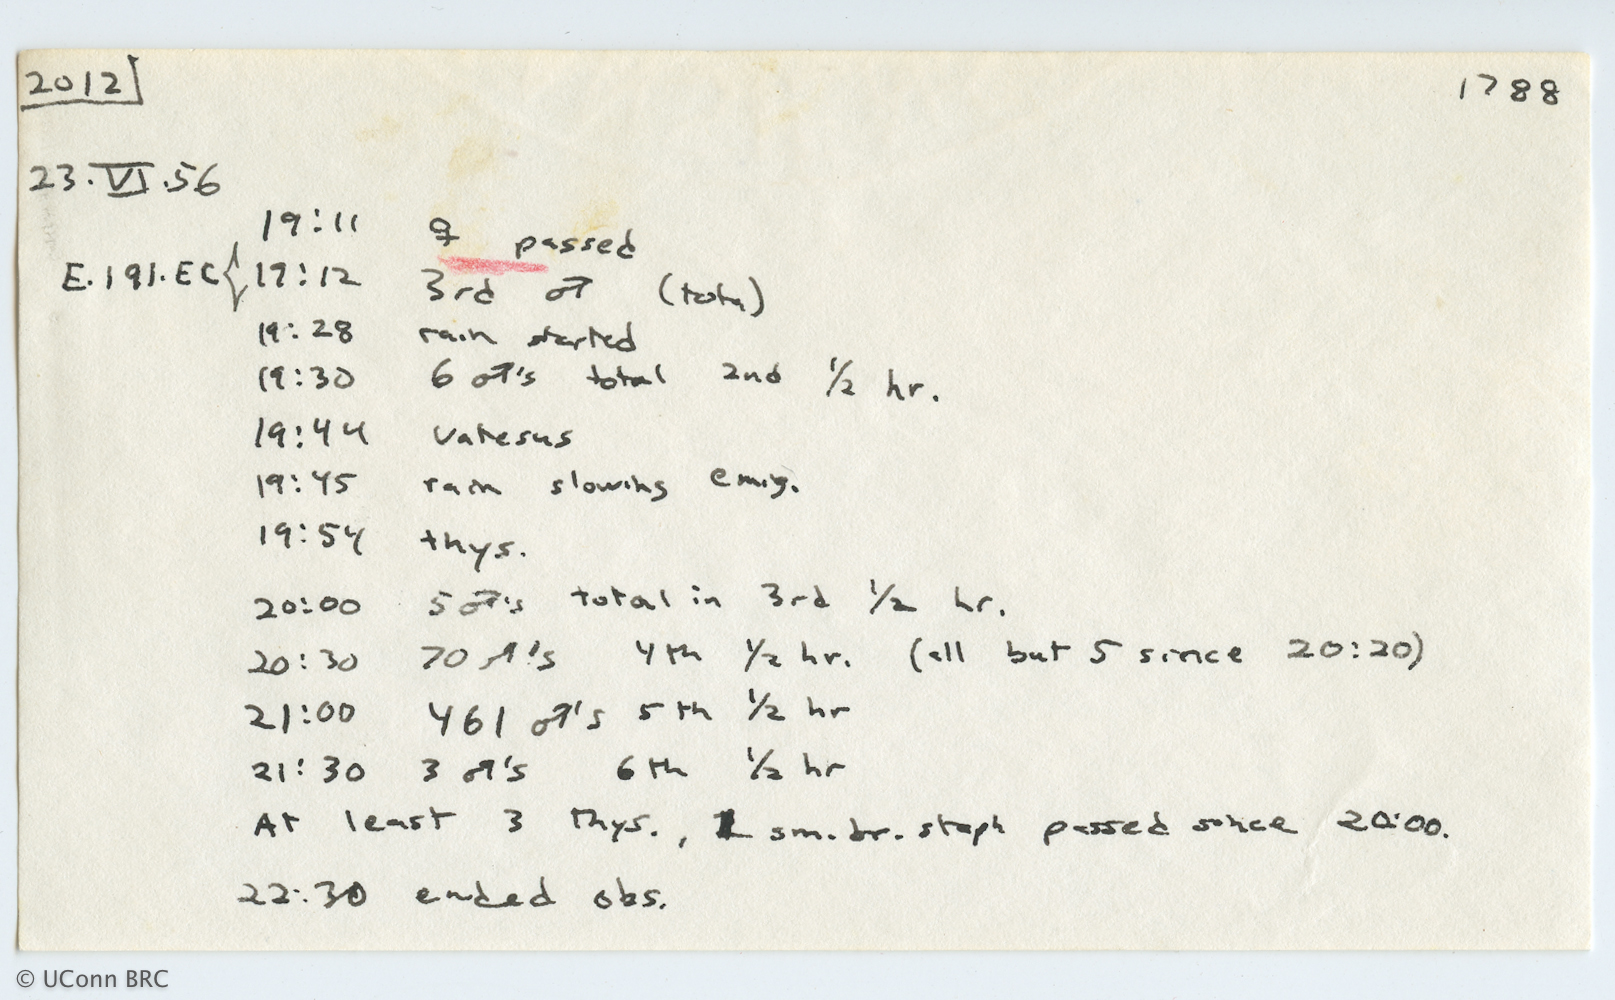 2012 1788
23.VI.56
19:11 ♀ passed
E.191.EC { 19:12 3rd ♂ (total)
19:28 rain started
19:30 6 ♂'s total 2nd 1/2 hr.
19:44 Vatesus
19:45 rain slowing emig.
19:54 thys.
20:00 5 ♂'s total in 3rd 1/2 hr.
20:30 70 ♂'s 4th 1/2 hr. (all but 5 since 20:20)
21:00 461 ♂'s 5th 1/2 hr
21:30 3 ♂'s 6th 1/2 hr
At least 3 thys., 1 sm. br. staph passed since 20:00.
22:30 ended obs.
© UConn BRC